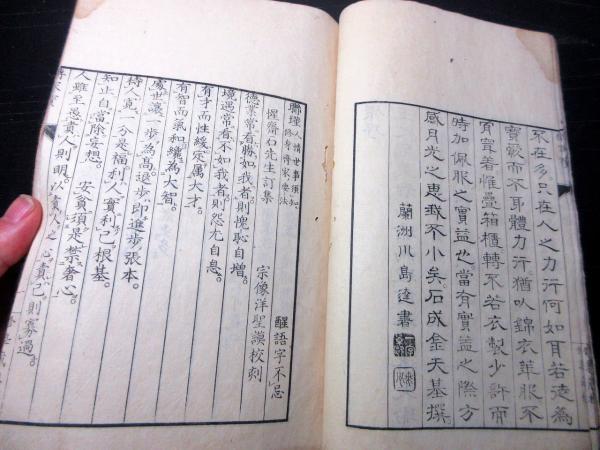 不在多只在人之力行何如耳若徒為
寶翫而不身體力行猶以錦衣華服不
肯穿着惟疊箱櫃轉不若衣製少許而
時加佩服之實益也當有實益之際方
感月光之惠我不小矣石成金天基撰
蘭洲川島逵書
聯瑾
人情世事須知
修身齊家要法
醒語字不忌
惺齋石先生訂集
宗像洋聖謨校刻
德業常看勝如我者則愧恥自增
境遇常看不如我者則怨尤自息
有才而性緩定屬大才
有智而氣和纔為大智
處世讓一步為高退步即進步張本
待人寬一分是福利人實利己根基
知止自當除妄想 安貧須是禁奢心
人雖至愚責人則明以責人之心責己則寡過